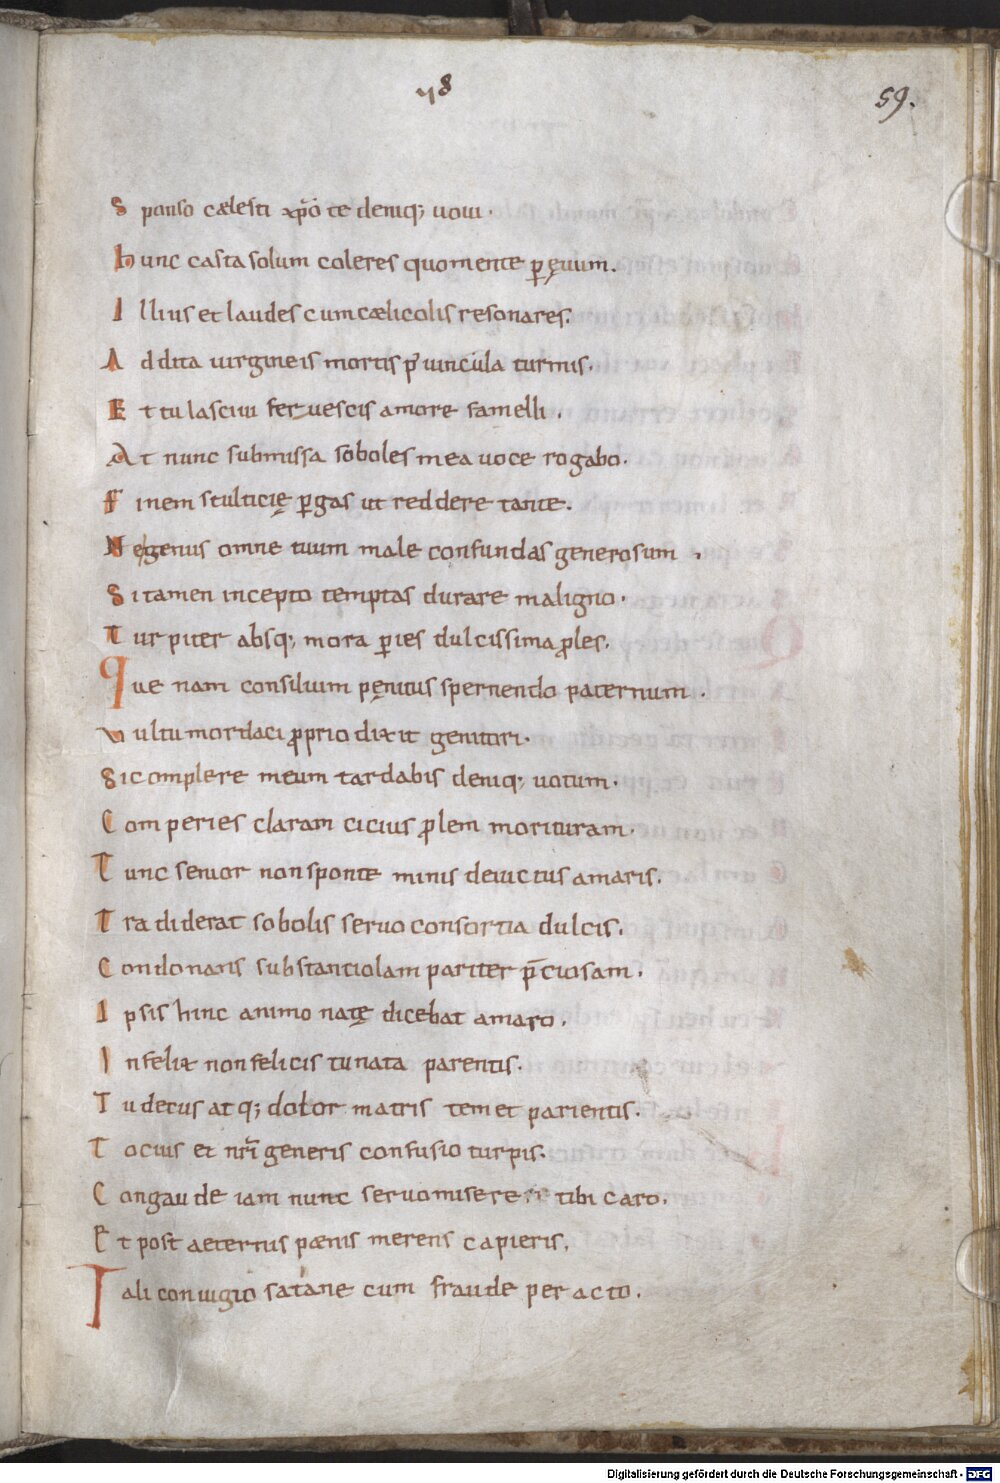 48
59.
Sponso cælesti xpō te deniq; uoui.
hunc casta solum coleres quo mente p̲ ęuum.
Illius et laudes cum cælicolis resonares.
Addita uirgineis mortis p' uincula turmis.
Et tu lasciui feruescis amore famelli.
At nunc submissa soboles mea uoce rogabo.
Finem stulticię p̲gas ut reddere tantę.
Ne genus omne tuum male confundas generosum.
Si tamen incepto temptas durare maligno.
Turpiter absq; mora p̲ies dulcissima ꝓles.
Que nam consilium pęnitus spernendo paternum.
Vultu mordaci ꝓprio dixit genitori.
Si complere meum tardabis deniq; uotum.
Comperies claram cicius ꝓlem morituram.
Tunc senior non sponte minis deuictus amaris.
Tradiderat sobolis seruo consortia dulcis.
Condonans substantiolam pariter p̄ciosam.
Ipsis hinc animo natę dicebat amaro.
Infelix non felicis tu nata parentis.
Tu decus atq; dolor matris temet parientis.
Tocius et nr̄i generis confusio turpis.
Congaude iam nunc seruo misere tibi caro.
Et post aeternis pænis merens capieris.
Tali coniugio satane cum fraude peracto.
Digitalisierung gefördert durch die Deutsche Forschungsgemeinschaft - DFG